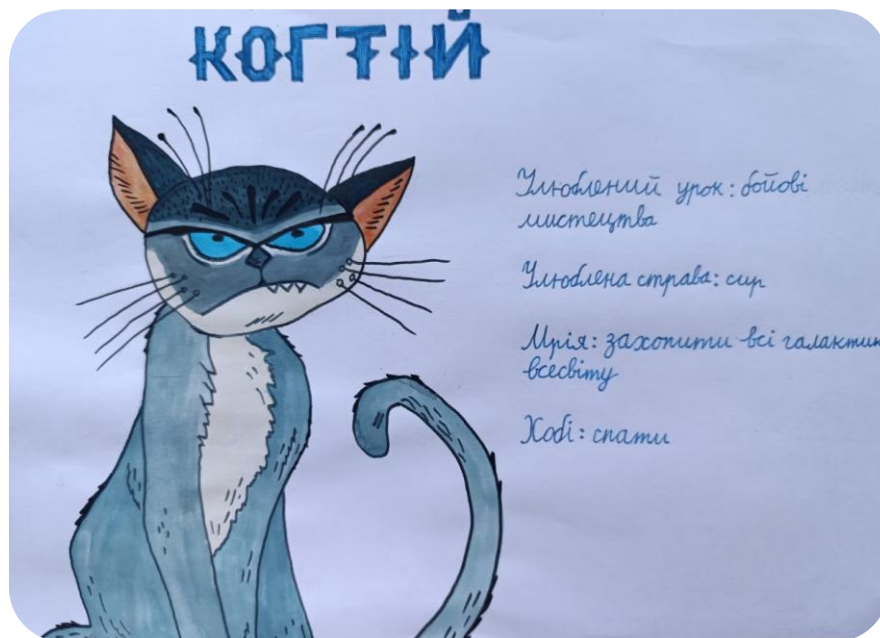 КОГТІЙ
Улюблений урок: бойові
мистецтва
Улюблена страва: сир
Мрія: захопити всі галактики
всесвіту
Хобі: спати